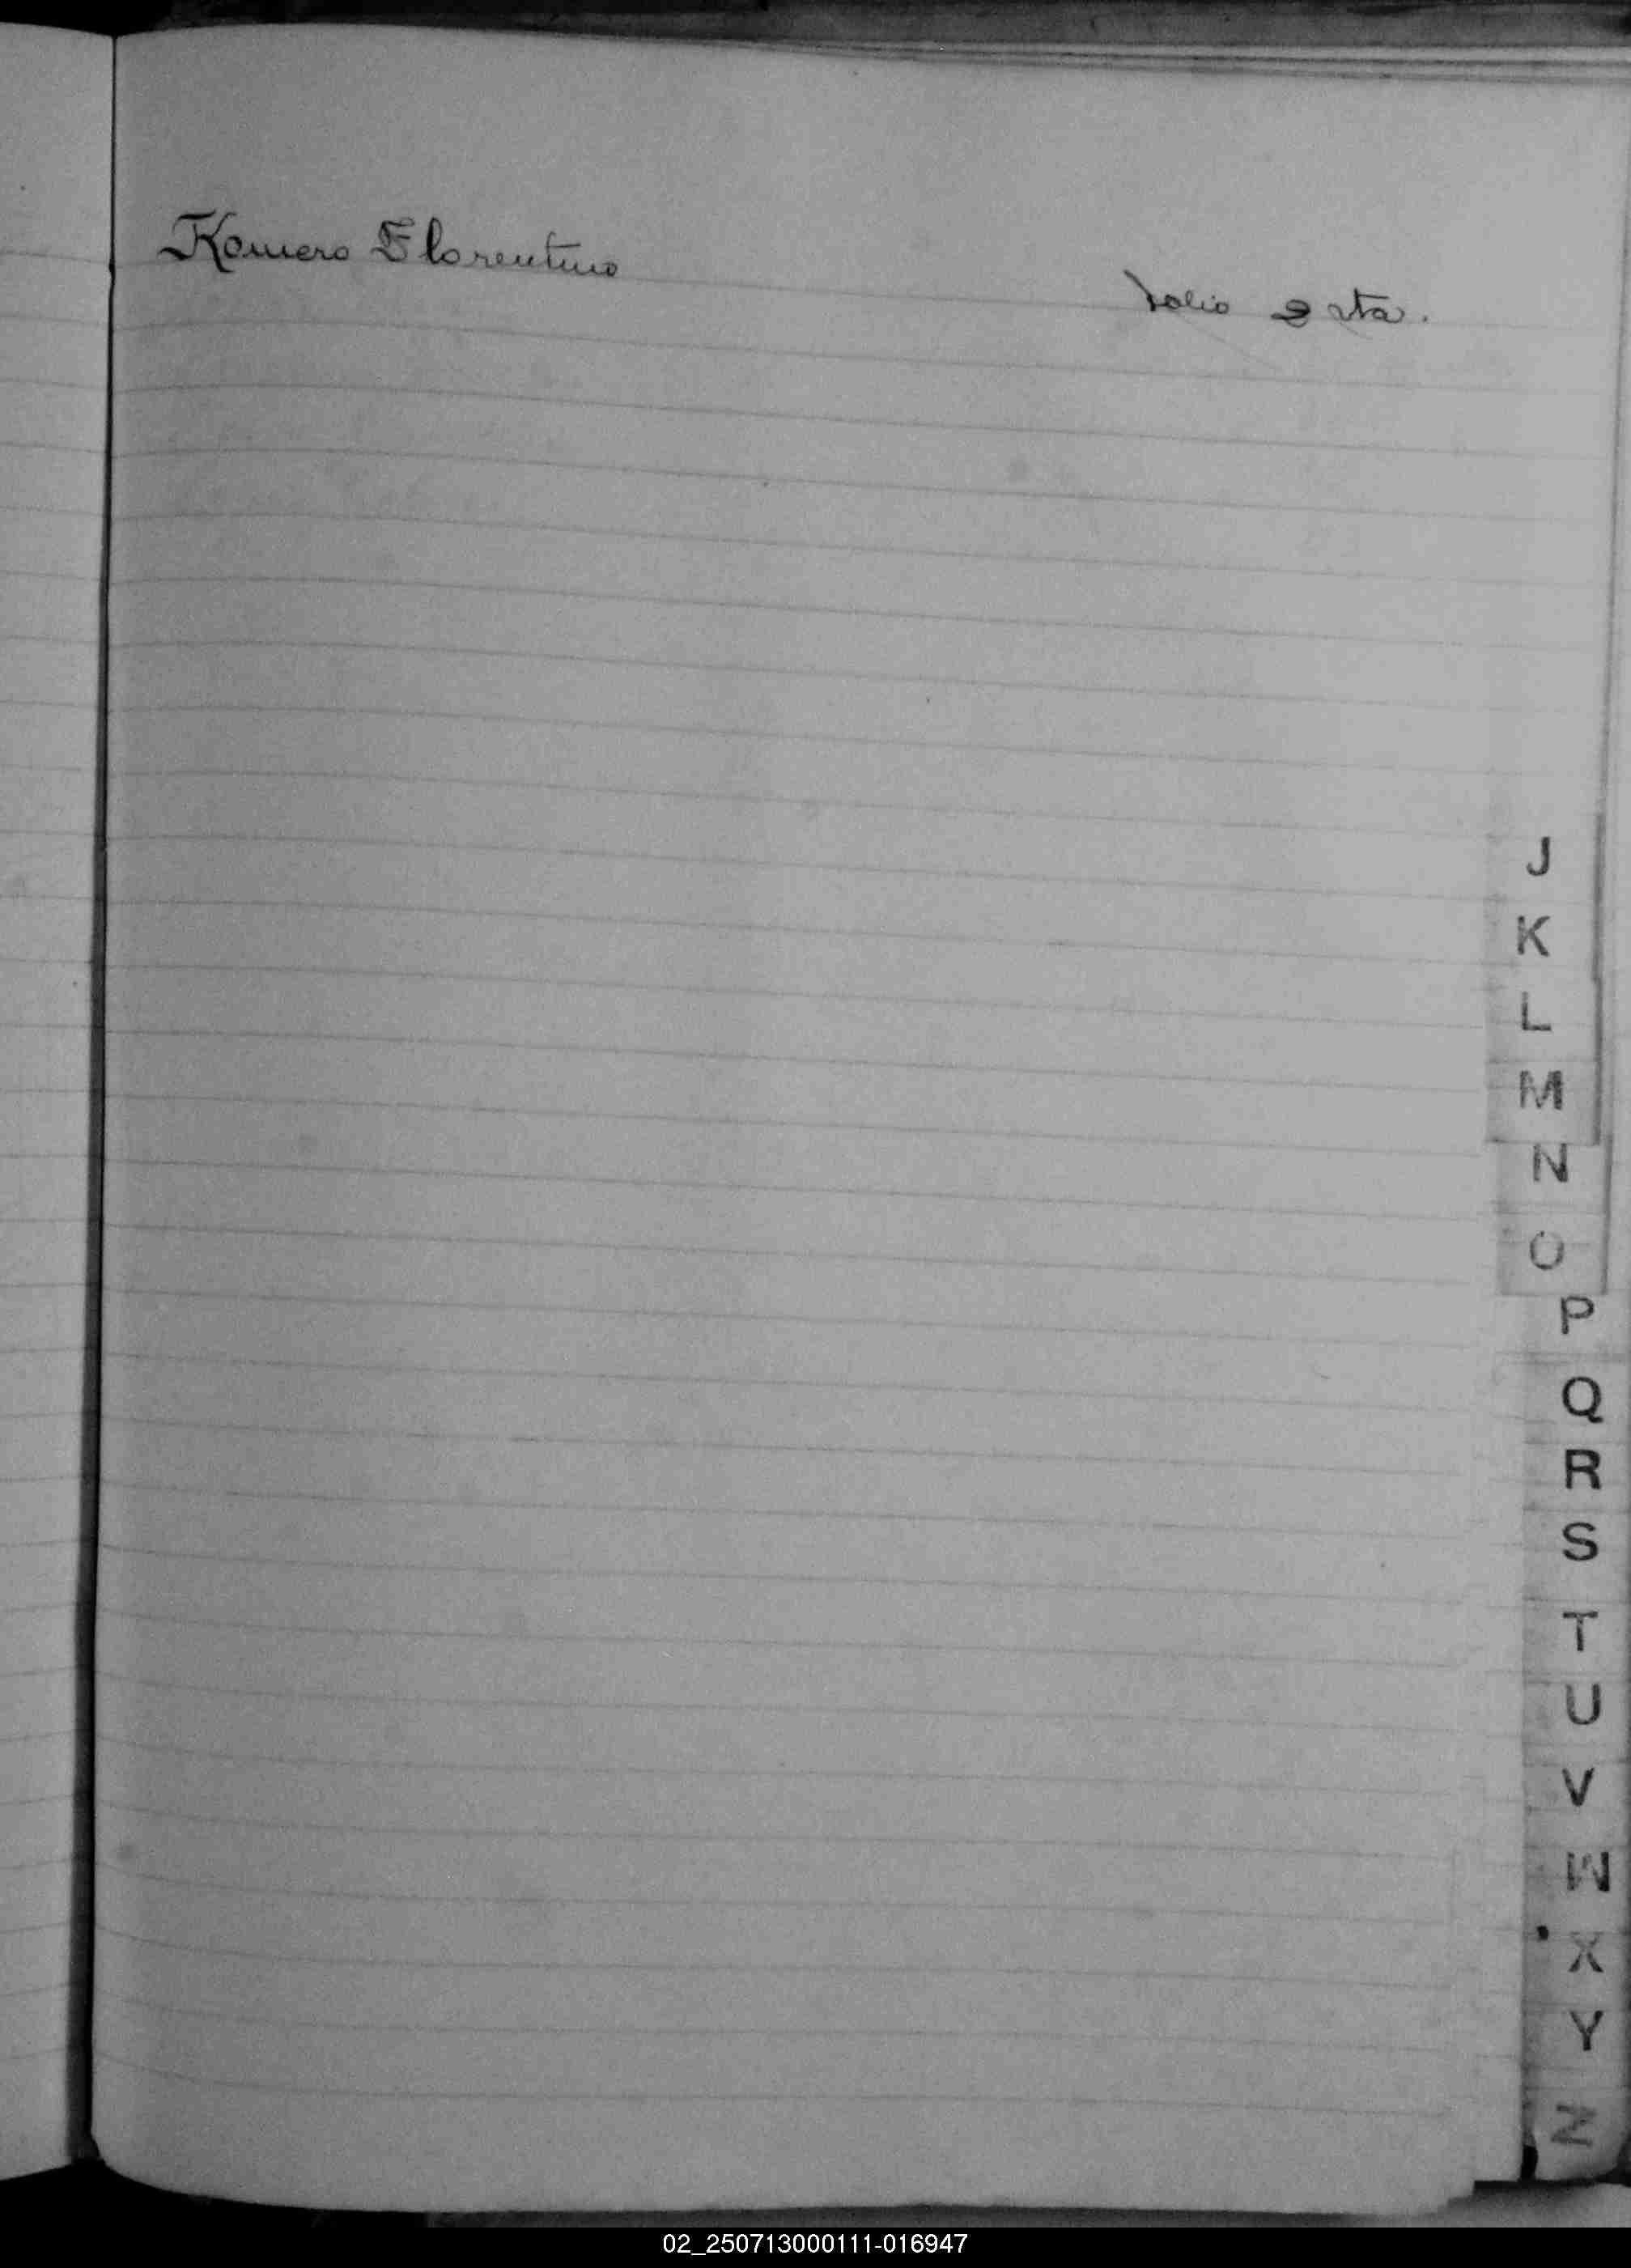 Romero Florentino
folio 2 vta.
J
K
L
M
N
O
P
Q
R
S
T
U
V
W
X
Y
Z
02_250713000111-016947